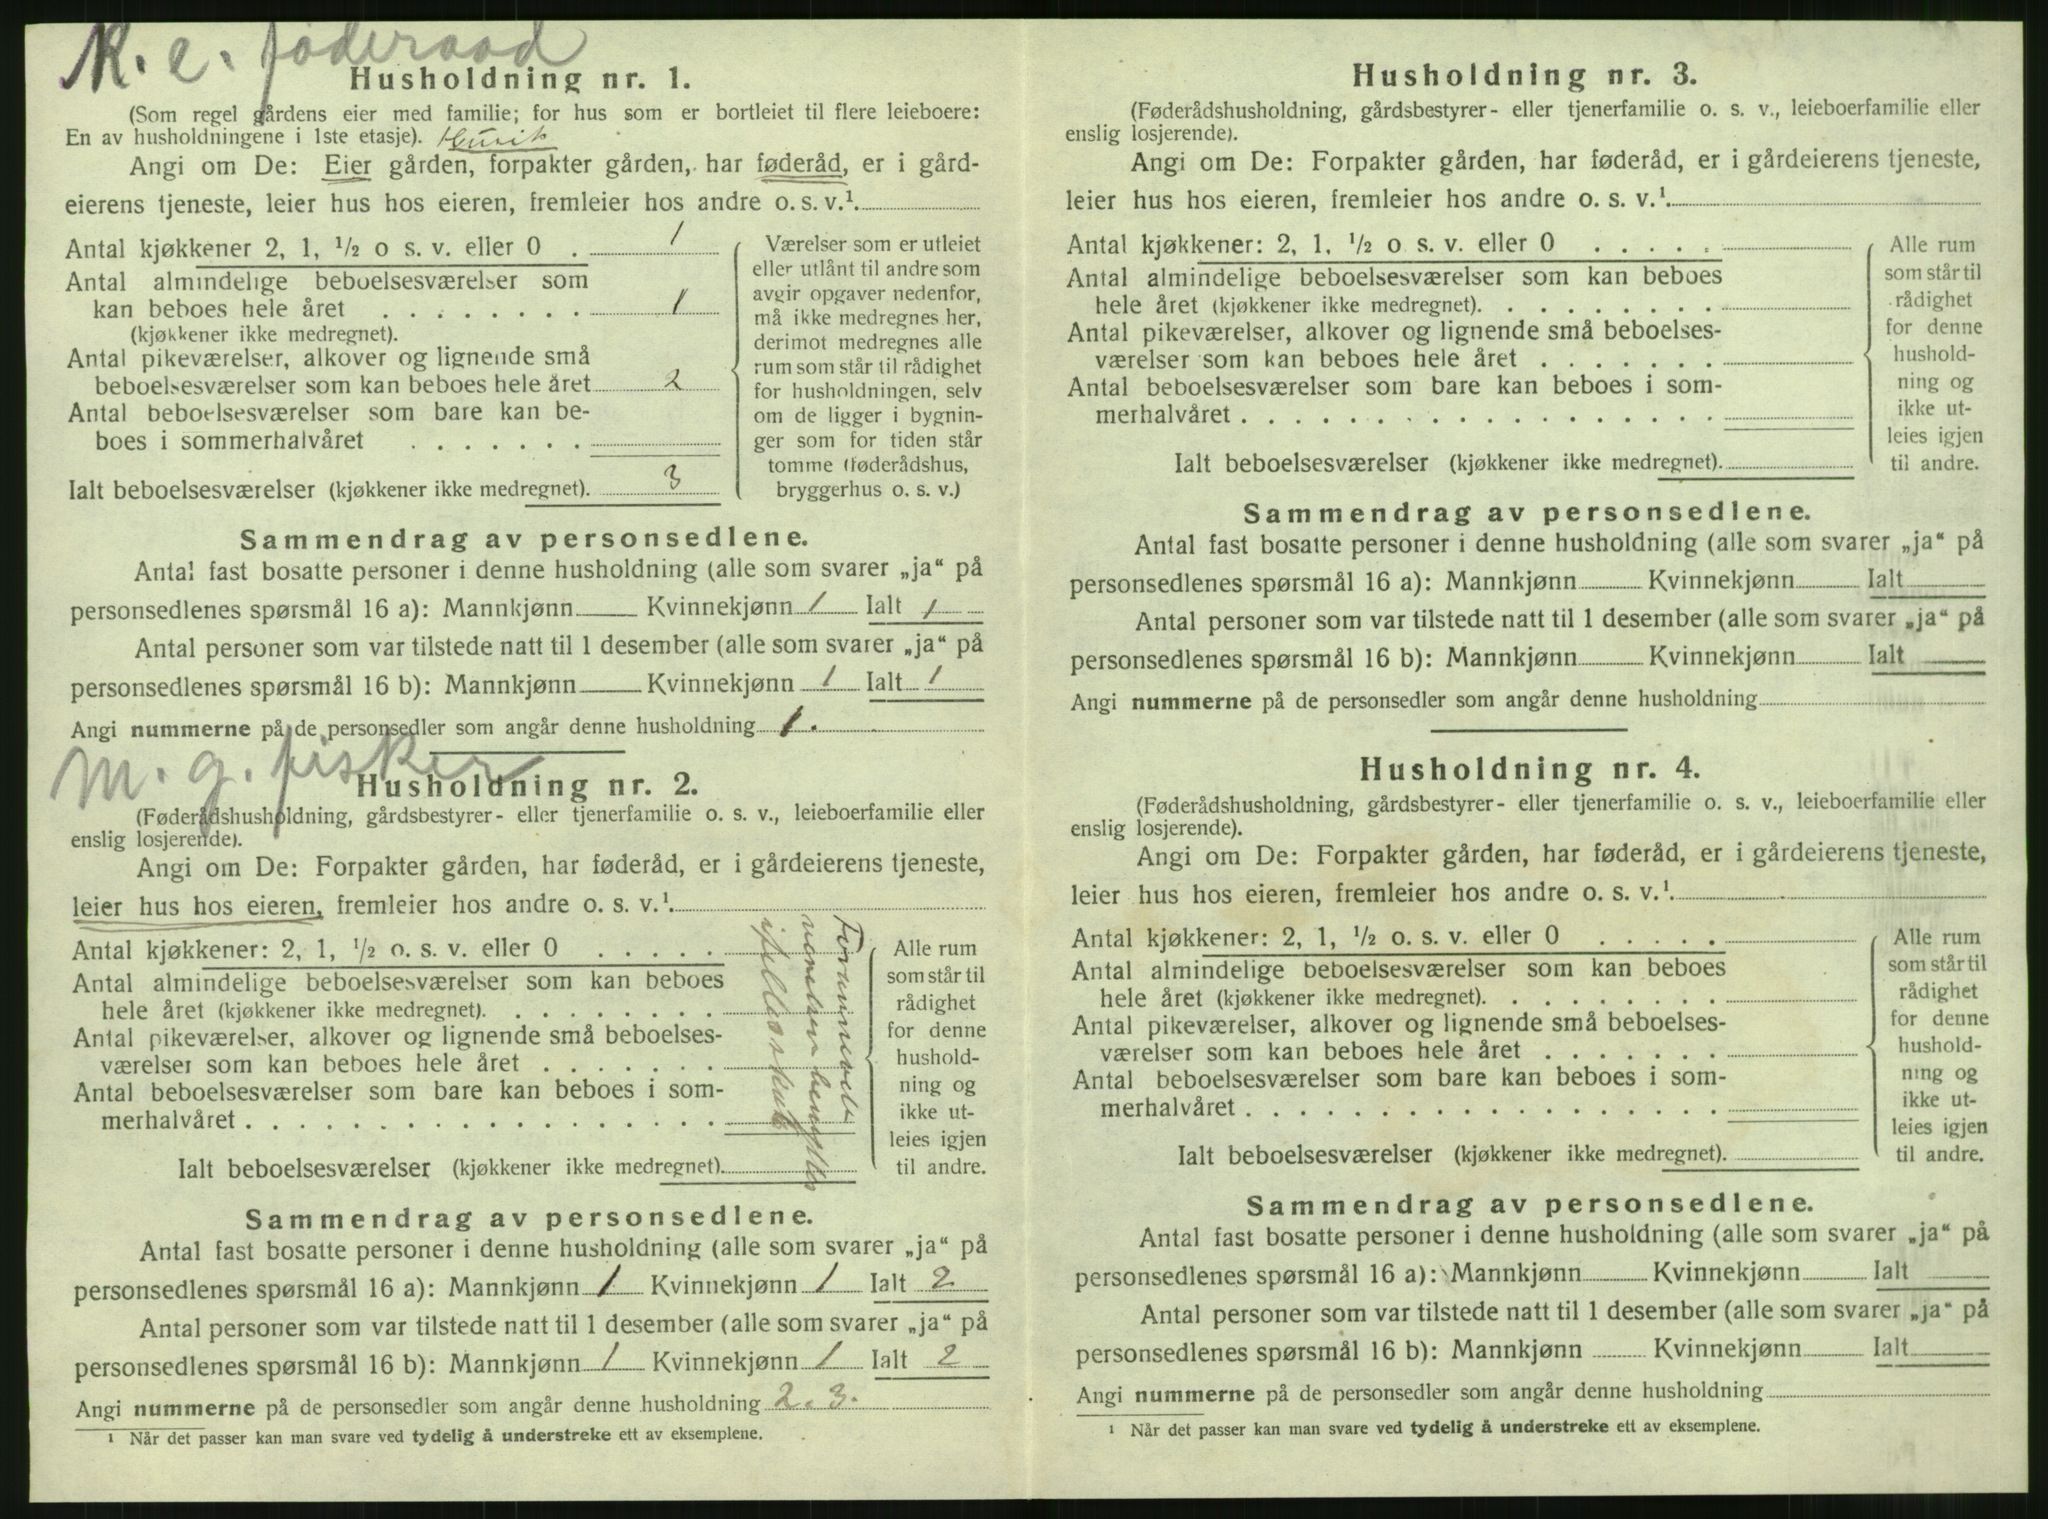 K. e. føderaad
Husholdning nr. 1.
(Som regel gårdens eier med familie; for hus som er bortleiet til flere leieboere:
En av husholdningene i 1ste etasje).
Angi om De: Eier gården, forpakter gården, har føderåd, er i gård-
eierens tjeneste, leier hus hos eieren, fremleier hos andre o. s. v.¹
Antal kjøkkener 2, 1, ½ o s. v. eller 0 . 1
Antal almindelige beboelsesværelser som
kan beboes hele året . . . . . . . . 1
(kjøkkener ikke medregnet).
Antal pikeværelser, alkover og lignende små
beboelsesværelser som kan beboes hele året 2
Antal beboelsesværelser som bare kan be-
boes i sommerhalvåret . . . . . . .
Ialt beboelsesværelser (kjøkkener ikke medregnet). 3
Værelser som er utleiet
eller utlånt til andre som
avgir opgaver nedenfor,
må ikke medregnes her,
derimot medregnes alle
rum som står til rådighet
for husholdningen, selv
om de ligger i bygnin-
ger som for tiden står
tomme (føderådshus,
bryggerhus o. s. v.)
Sammendrag av personsedlene.
Antal fast bosatte personer i denne husholdning (alle som svarer „ja“ på
personsedlenes spørsmål 16 a): Mannkjønn — Kvinnekjønn 1 Ialt 1
Antal personer som var tilstede natt til 1 desember (alle som svarer „ja“ på
personsedlenes spørsmål 16 b): Mannkjønn — Kvinnekjønn 1 Ialt 1
Angi nummerne på de personsedler som angår denne husholdning 1.
M. g. fisker
Husholdning nr. 2.
(Føderådshusholdning, gårdsbestyrer- eller tjenerfamilie o. s. v., leieboerfamilie eller
enslig losjerende).
Angi om De: Forpakter gården, har føderåd, er i gårdeierens tjeneste,
leier hus hos eieren, fremleier hos andre o. s. v.¹
Antal kjøkkener: 2, 1, ½ o. s. v. eller 0 . . . . .
Antal almindelige beboelsesværelser som kan beboes
hele året (kjøkkener ikke medregnet). . . . . . . . .
Antal pikeværelser, alkover og lignende små beboelses-
værelser som kan beboes hele året . . . . . . .
Antal beboelsesværelser som bare kan beboes i som-
merhalvåret . . . . . . . . . . . . . . . . . .
Ialt beboelsesværelser (kjøkkener ikke medregnet).
Alle rum
som står til
rådighet
for denne
hushold-
ning og
ikke ut-
leies igjen
til andre.
Sammendrag av personsedlene.
Antal fast bosatte personer i denne husholdning (alle som svarer „ja“ på
personsedlenes spørsmål 16 a): Mannkjønn 1 Kvinnekjønn 1 Ialt 2
Antal personer som var tilstede natt til 1 desember (alle som svarer „ja“ på
personsedlenes spørsmål 16 b): Mannkjønn 1 Kvinnekjønn 1 Ialt 2
Angi nummerne på de personsedler som angår denne husholdning 2. 3.
¹ Når det passer kan man svare ved tydelig å understreke ett av eksemplene.
Husholdning nr. 3.
(Føderådshusholdning, gårdsbestyrer- eller tjenerfamilie o. s. v., leieboerfamilie eller
enslig losjerende).
Angi om De: Forpakter gården, har føderåd, er i gårdeierens tjeneste,
leier hus hos eieren, fremleier hos andre o. s. v.¹
Antal kjøkkener: 2, 1, ½ o s. v. eller 0 . . . . .
Antal almindelige beboelsesværelser som kan beboes
hele året (kjøkkener ikke medregnet). . . . . . . . .
Antal pikeværelser, alkover og lignende små beboelses-
værelser som kan beboes hele året . . . . . . .
Antal beboelsesværelser som bare kan beboes i som-
merhalvåret . . . . . . . . . . . . . . . . . .
Ialt beboelsesværelser (kjøkkener ikke medregnet).
Alle rum
som står til
rådighet
for denne
hushold-
ning og
ikke ut-
leies igjen
til andre.
Sammendrag av personsedlene.
Antal fast bosatte personer i denne husholdning (alle som svarer „ja“ på
personsedlenes spørsmål 16 a): Mannkjønn Kvinnekjønn Ialt
Antal personer som var tilstede natt til 1 desember (alle som svarer „ja“ på
personsedlenes spørsmål 16 b): Mannkjønn Kvinnekjønn Ialt
Angi nummerne på de personsedler som angår denne husholdning
Husholdning nr. 4.
(Føderådshusholdning, gårdsbestyrer- eller tjenerfamilie o. s. v., leieboerfamilie eller
enslig losjerende).
Angi om De: Forpakter gården, har føderåd, er i gårdeierens tjeneste,
leier hus hos eieren, fremleier hos andre o. s. v.¹
Antal kjøkkener: 2, 1, ½ o. s. v. eller 0 . . . . .
Antal almindelige beboelsesværelser som kan beboes
hele året (kjøkkener ikke medregnet). . . . . . . . .
Antal pikeværelser, alkover og lignende små beboelses-
værelser som kan beboes hele året . . . . . . .
Antal beboelsesværelser som bare kan beboes i som-
merhalvåret . . . . . . . . . . . . . . . . . .
Ialt beboelsesværelser (kjøkkener ikke medregnet).
Alle rum
som står til
rådighet
for denne
hushold-
ning og
ikke ut-
leies igjen
til andre.
Sammendrag av personsedlene.
Antal fast bosatte personer i denne husholdning (alle som svarer „ja“ på
personsedlenes spørsmål 16 a): Mannkjønn Kvinnekjønn Ialt
Antal personer som var tilstede natt til 1 desember (alle som svarer „ja“ på
personsedlenes spørsmål 16 b): Mannkjønn Kvinnekjønn Ialt
Angi nummerne på de personsedler som angår denne husholdning
¹ Når det passer kan man svare ved tydelig å understreke ett av eksemplene.